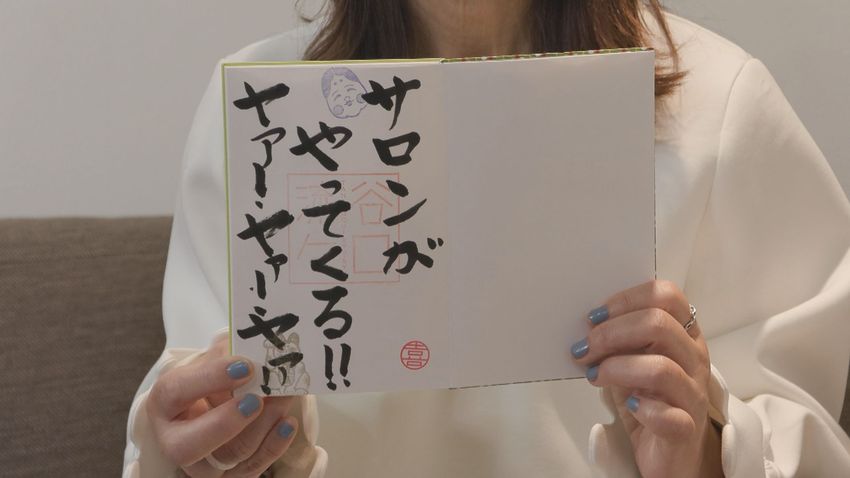 サロンが
やってくる!!
ヤァー・ヤァー・ヤァー!
谷口
喜